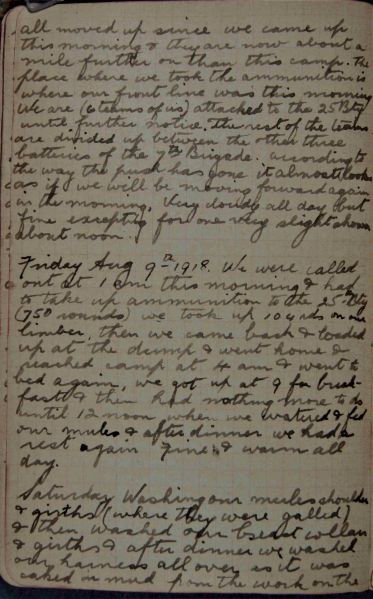 all moved up since we came up
this morning & they are now about a
mile further on than this camp. The
place where we took the ammunition is
where our front line was this morning
We are (6 teams of us) attached to the 25 Bty
until further notice. The rest of the teams
are divided up between the other three
batteries of the 7th Brigade. according to
the way the push has gone it almost looks
as if we will be moving forward again
in the morning. Very cloudy all day but
fine excepting for one very slight shower
about noon.
Friday Aug 9th 1918. We were called
out at 1 am this morning & had
to take up ammunition to the 25th Bty
(750 rounds) we took up on our
limber, then we came back & loaded
up at the dump & went home &
reached camp at 4 am & went to
bed again, we got up at 9 for break-
fast & then had nothing more to do
until 12 noon when we watered & fed
our mules & after dinner we had a
rest again Fine & warm all
day.
Saturday Washing our mules shoulder
& girths (where they were galled)
& then washed our breast collars
& girths & after dinner we washed
our harness all over as it was
caked in mud from the work on the